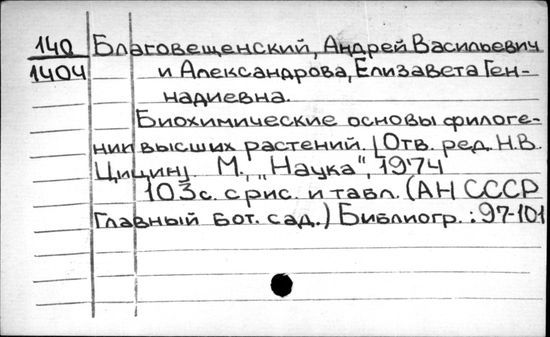 140 Благовещенский, Андрей Васильевич
1404 и Александрова, Елизавета Ген-
надиевна.
Биохимические основы филоге-
нии высших растений. [Отв. ред. Н.В.
Цицин]. М., "Наука", 1974
103с. с рис. и табл. (АН СССР
Главный бот. сад.) Библиогр.: 97-101